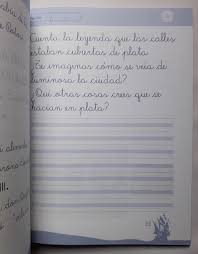 Cuenta la leyenda que las calles
estaban cubiertas de plata
¿Te imaginas cómo se veía de
luminosa la ciudad?
¿Qué otras cosas crees que se
hacían en plata?